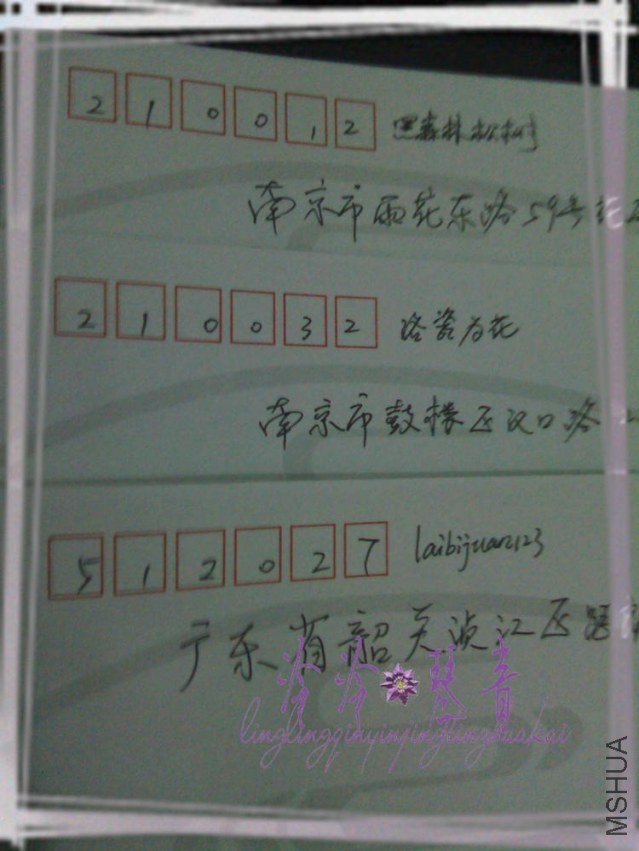 210012 黑森林松树
南京市雨花东路59号花
210032 洛瓷为花
南京市鼓楼区汉口路
512027 laibijuan123
广东省韶关浈江区
泠泠琴音
linglingqinyinjingtinghuakai
MSHUA